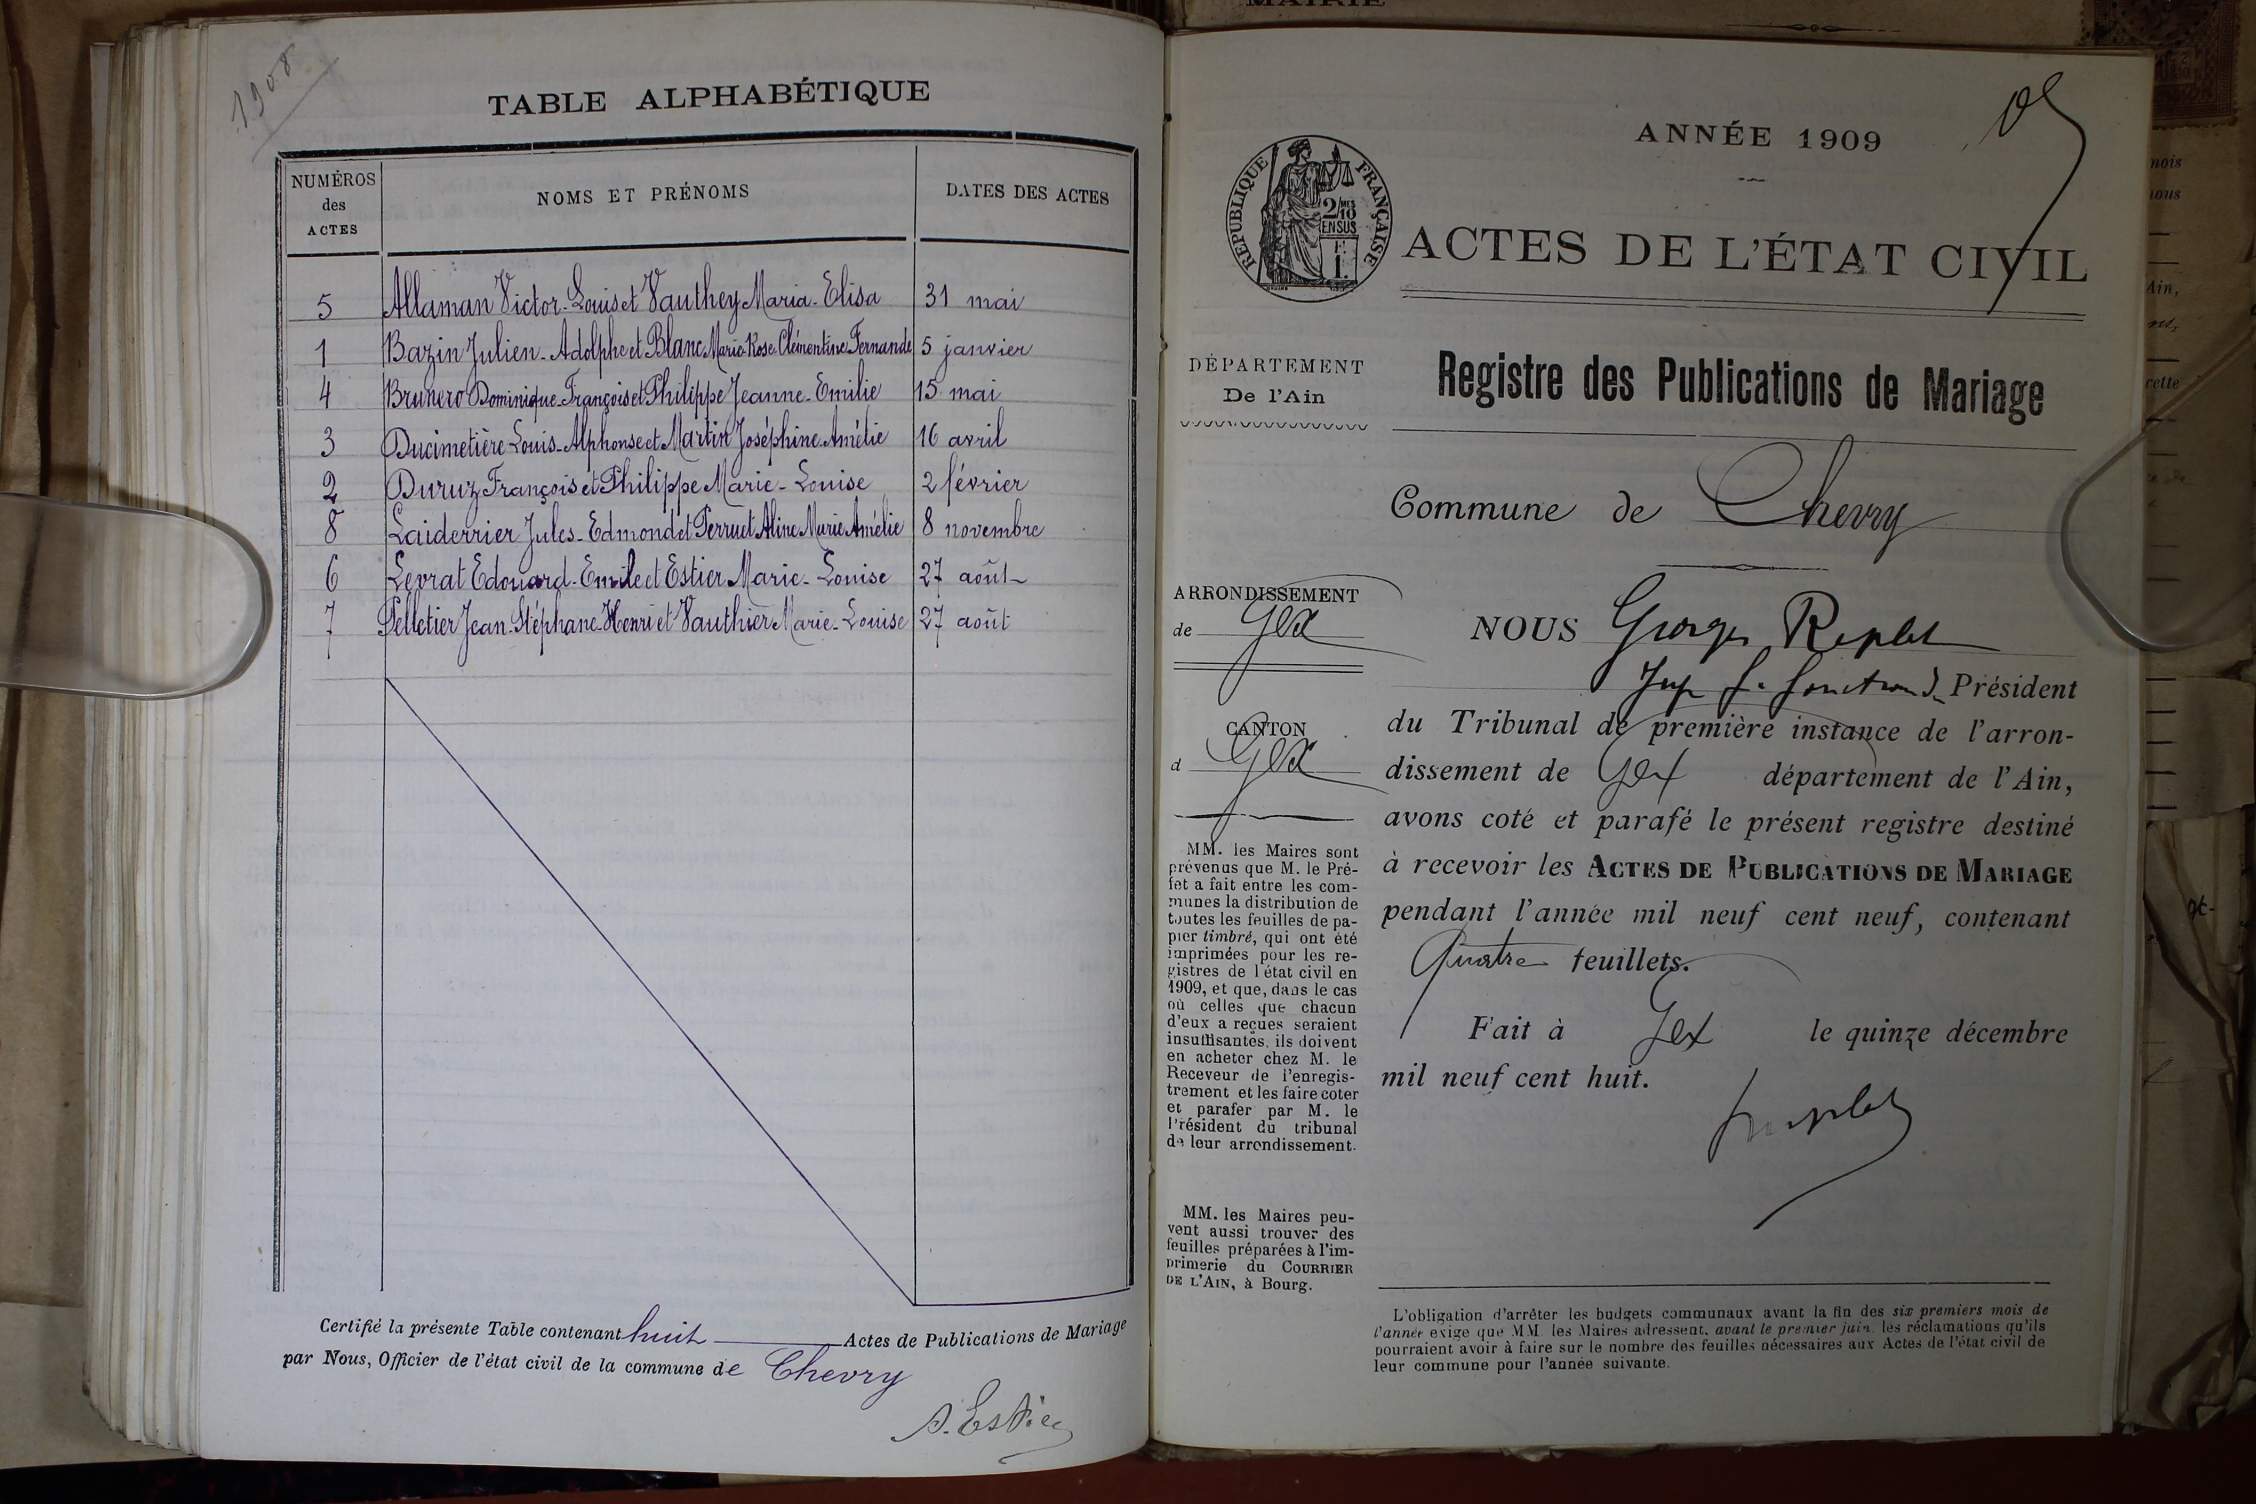 1908
TABLE ALPHABÉTIQUE
NUMÉROS des ACTES
NOMS ET PRÉNOMS
DATES DES ACTES
5 Allaman Victor-Louis et Vauthey Maria-Elisa 31 mai
1 Bazin Julien-Adolphe et Blanc Marie-Rose Clémentine Fernande 5 janvier
4 Brunero Dominique-François et Philippe Jeanne-Emilie 15 mai
3 Ducimetière Louis-Alphonse et Martin Joséphine Amélie 16 avril
2 Duruz François et Philippe Marie-Louise 2 février
8 Laiderrier Jules-Edmond et Perruet Aline Marie Amélie 8 novembre
6 Levrat Edouard-Emile et Estier Marie-Louise 27 août
7 Pelletier Jean-Stéphane-Henri et Vauthier Marie-Louise 27 août
Certifié la présente Table contenant huit Actes de Publications de Mariage
par Nous, Officier de l'état civil de la commune de Chevry
A. Estier
MAIRIE
ANNÉE 1909
RÉPUBLIQUE FRANÇAISE
2/10MES
EN SUS
1F.
ACTES DE L'ÉTAT CIVIL
DÉPARTEMENT
De l'Ain
Registre des Publications de Mariage
Commune de Chevry
ARRONDISSEMENT
de Gex
CANTON
d Gex
MM. les Maires sont
prévenus que M. le Pré-
fet a fait entre les com-
munes la distribution de
toutes les feuilles de pa-
pier timbré, qui ont été
imprimées pour les re-
gistres de l'état civil en
1909, et que, dans le cas
où celles que chacun
d'eux a reçues seraient
insuffisantes, ils doivent
en acheter chez M. le
Receveur de l'enregis-
trement et les faire coter
et parafer par M. le
Président du tribunal
de leur arrondissement.
MM. les Maires peu-
vent aussi trouver des
feuilles préparées à l'im-
primerie du COURRIER
DE L'AIN, à Bourg.
NOUS Georges Replat
Juge f. fonctions de Président
du Tribunal de première instance de l'arron-
dissement de Gex département de l'Ain,
avons coté et parafé le présent registre destiné
à recevoir les ACTES DE PUBLICATIONS DE MARIAGE
pendant l'année mil neuf cent neuf, contenant
Quatre feuillets.
Fait à Gex le quinze décembre
mil neuf cent huit.
L'obligation d'arrêter les budgets communaux avant la fin des six premiers mois de
l'année exige que MM. les Maires adressent, avant le premier juin, les réclamations qu'ils
pourraient avoir à faire sur le nombre des feuilles nécessaires aux Actes de l'état civil de
leur commune pour l'année suivante.
nois
nous
Ain,
cette